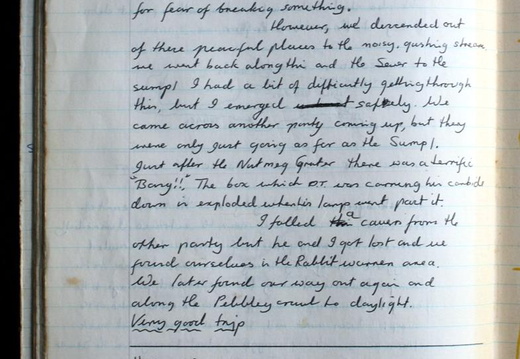 for fear of breaking something.
However, we descended out
of these peaceful places to the noisy, gushing stream,
we went back along this and the Sewer to the
sump! I had a bit of difficulty getting through
this, but I emerged safely. We
came across another party coming up, but they
were only just going as far as the Sump!.
Just after the Nutmeg Grater there was a terrific
"Bang!!". The box which D.T. was carrying his carbide
down in exploded when his lamp went past it.
I followed a caver from the
other party but he and I got lost and we
found ourselves in the Rabbit warren area.
We later found our way out again and
along the Pebbley crawl to daylight.
Very good trip